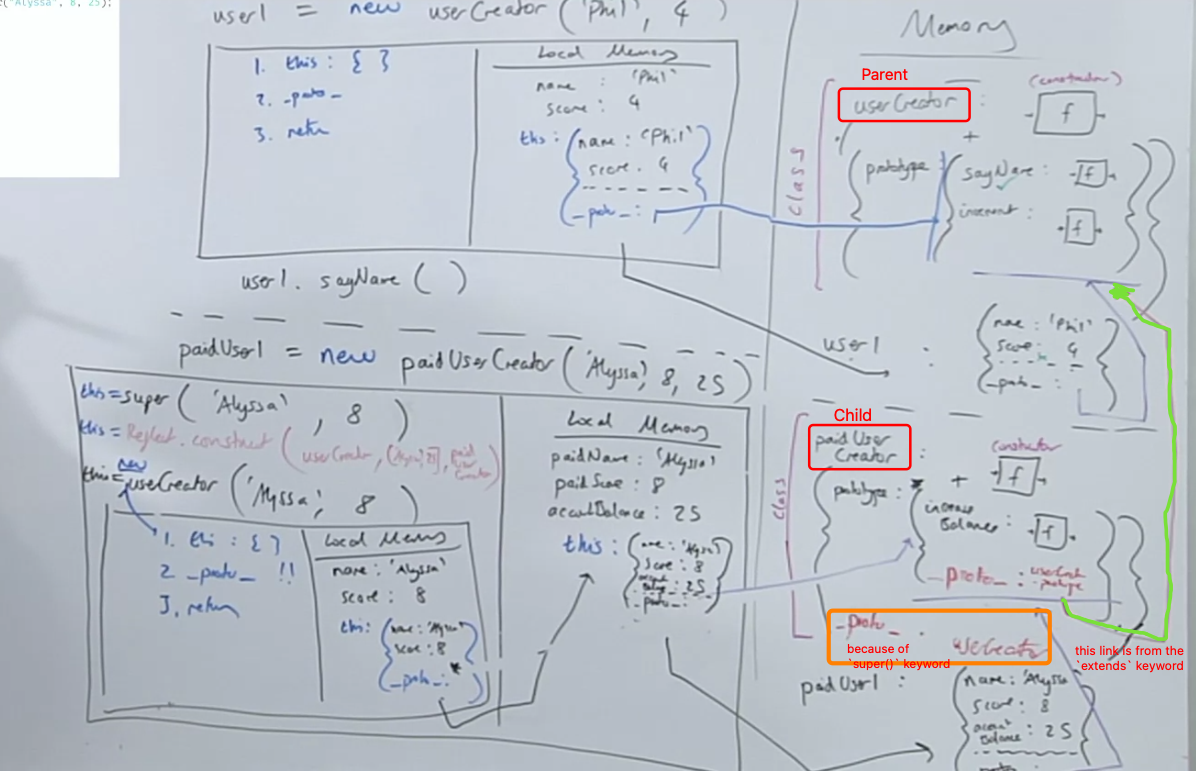 "Alyssa", 8, 25);
user1 = new userCreator ('Phil', 4)
1. this : { }
2. _proto_
3. return
Local Memory
name : 'Phil'
score : 4
this : { name : 'Phil'
score : 4
_proto_ : }
user1. sayName ( )
paidUser1 = new paidUserCreator ('Alyssa', 8, 25)
this = super ( 'Alyssa' , 8 )
this = Reflect.construct ( userCreator,
this = new userCreator ('Alyssa', 8 )
1. this : { }
2 _proto_ !!
3. return
Local Memory
name : 'Alyssa'
score : 8
this: { name : 'Alyssa'
score : 8
_proto_ : * }
Local Memory
paidName : 'Alyssa'
paidScore : 8
accountBalance : 25
this : { name : 'Alyssa'
score : 8
account Balance : 25
_proto_ : }
Memory
Parent
Class
userCreator :
(constructor)
f
+
{ prototype : { sayName : f
increment : f } }
user1 :
{ name : 'Phil'
score : 4
_proto_ : }
Child
Class
paidUser
Creator :
constructor
+ f
{ prototype : * { increase
Balance : f
_proto_ : userCreator
prototype } }
_proto_ : userCreator
because of
`super()` keyword
this link is from the
`extends` keyword
paidUser1 :
{ name : 'Alyssa
score : 8
account
Balance : 25